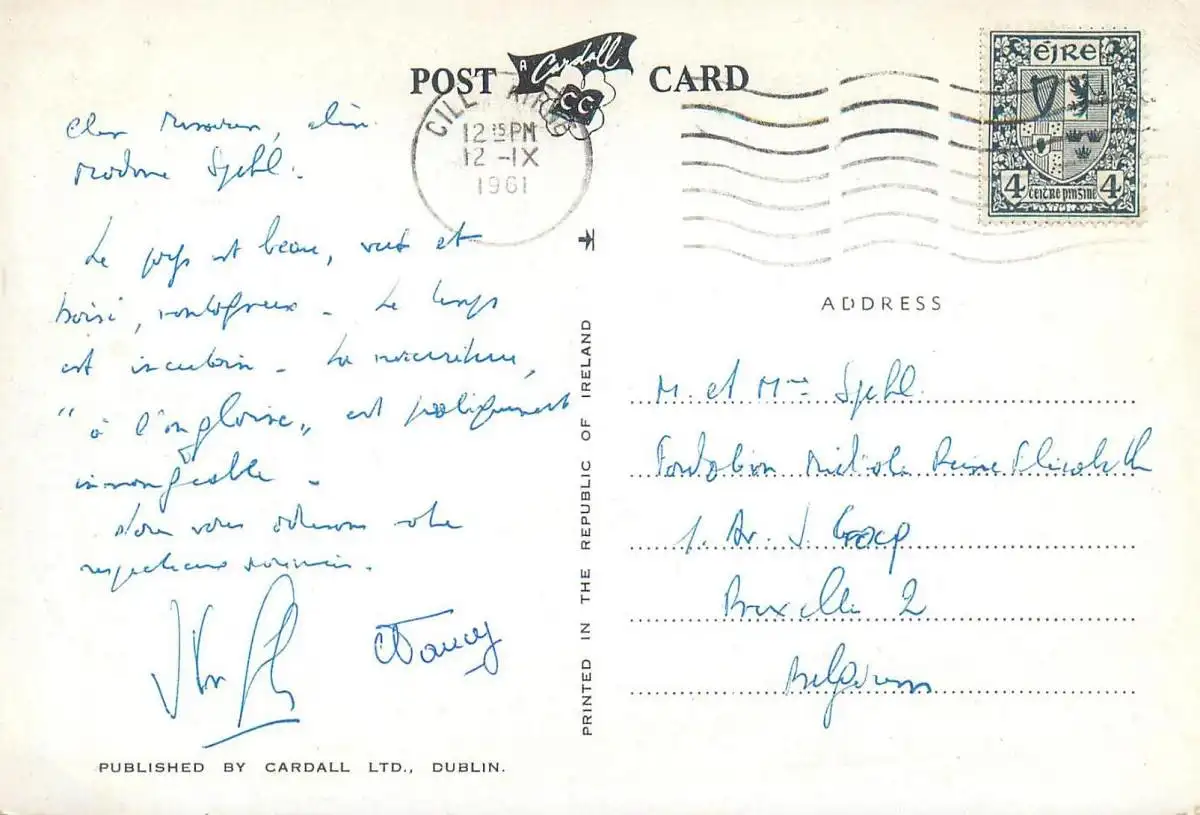 POST CARD
A Cardall
CG
CILL AIRNE
12 15 PM
12 -IX
1961
EIRE
4 ceitre pingine 4
Cher Monsieur, chère
Madame Spehl.
Le pays est beau, vert et
boisé, montagneux - Le temps
est incertain - La nourriture,
"à l'anglaise" est pratiquement
immangeable -
Nous vous adressons nos
respectueux souvenirs.
Nancy
ADDRESS
M. et Mme Spehl.
Fondation Médicale Reine Elisabeth
1. Av. J. Crocq
Bruxelles 2
Belgium
PRINTED IN THE REPUBLIC OF IRELAND
PUBLISHED BY CARDALL LTD., DUBLIN.